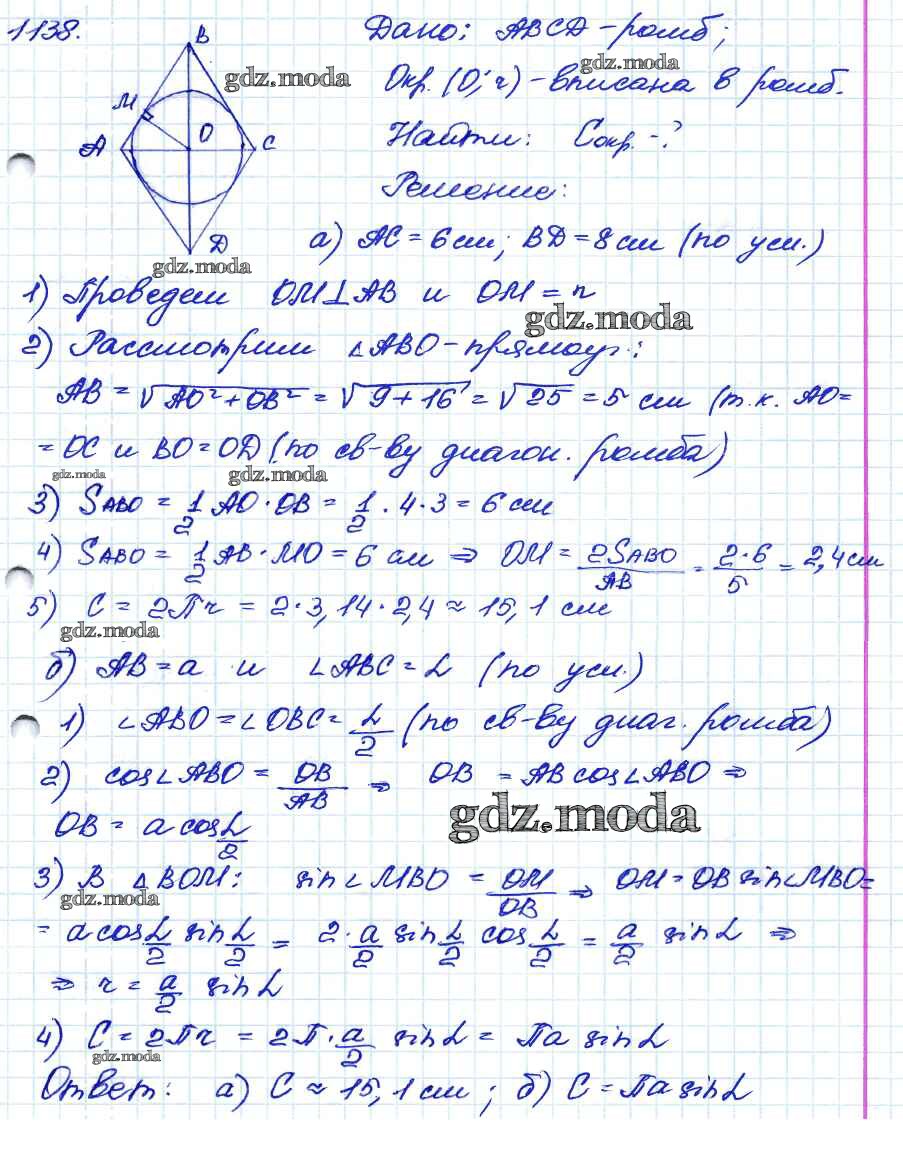 1138.
B
M
O
A
C
D
Дано: ABCD - ромб;
gdz.moda
gdz.moda
Окр. (O; r) - вписана в ромб.
Найти: Cокр. - ?
Решение:
а) AC = 6 см; BD = 8 см (по усл.)
gdz.moda
1) Проведем OM ⊥ AB и OM = r
gdz.moda
2) Рассмотрим ∠ABO - прямоуг.:
AB = √AO² + OB² = √9 + 16 = √25 = 5 см (т.к. AO =
= OC и BO = OD (по св-ву диагон. ромба)
gdz.moda gdz.moda
3) SABO = 1/2 AO · OB = 1/2 · 4 · 3 = 6 см
4) SABO = 1/2 AB · MO = 6 см ⇒ OM = 2SABO/AB = 2·6/5 = 2,4 см
5) C = 2πr = 2 · 3,14 · 2,4 ≈ 15,1 см
gdz.moda
б) AB = a и ∠ABC = α (по усл.)
1) ∠ABO = ∠OBC = α/2 (по св-ву диаг. ромба)
2) cos∠ABO = OB/AB ⇒ OB = AB cos∠ABO ⇒
gdz.moda
OB = a cos α/2
3) В △BOM: sin∠MBO = OM/OB ⇒ OM = OB sin∠MBO =
gdz.moda
= a cos α/2 sin α/2 = 2 · a/2 sin α/2 cos α/2 = a/2 sin α ⇒
⇒ r = a/2 sin α
4) C = 2πr = 2π · a/2 sin α = πa sin α
gdz.moda
Ответ: а) C ≈ 15,1 см; б) C = πa sin α